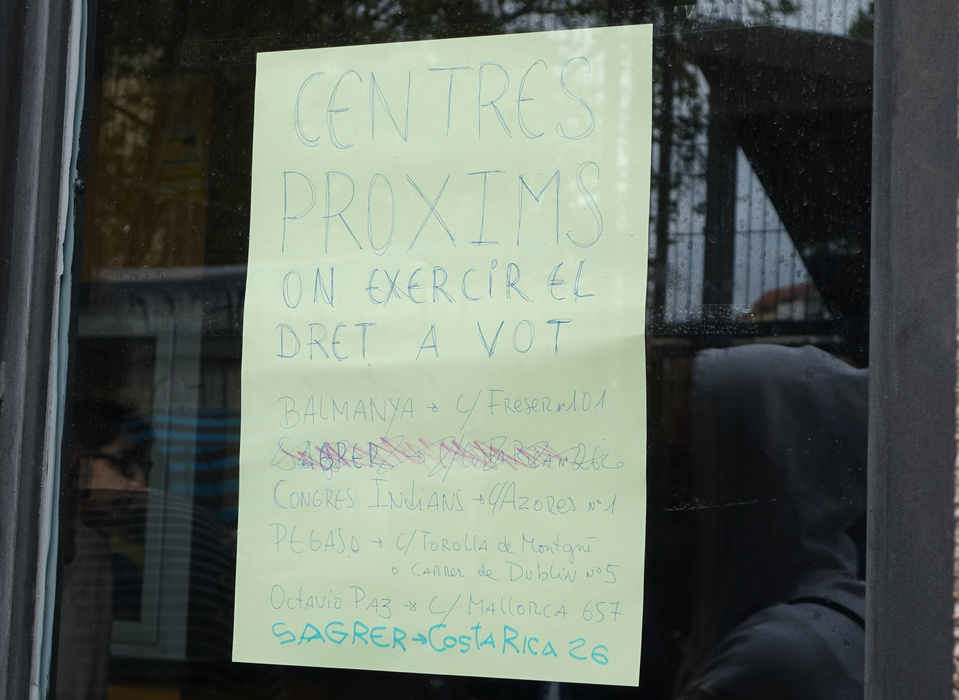 CENTRES
PROXIMS
ON EXERCIR EL
DRET A VOT
BALMANYA → C/ FRESER nº101
SAGRER → C/ COSTA RICA
CONGRES INDIANS → C/AZORES nº1
PEGASO → C/ TOROLLA de Montgrí
o CARRER de DUBLIN nº5
OCTAVIO PAZ → C/ MALLORCA 657
SAGRER→COSTA RICA 26